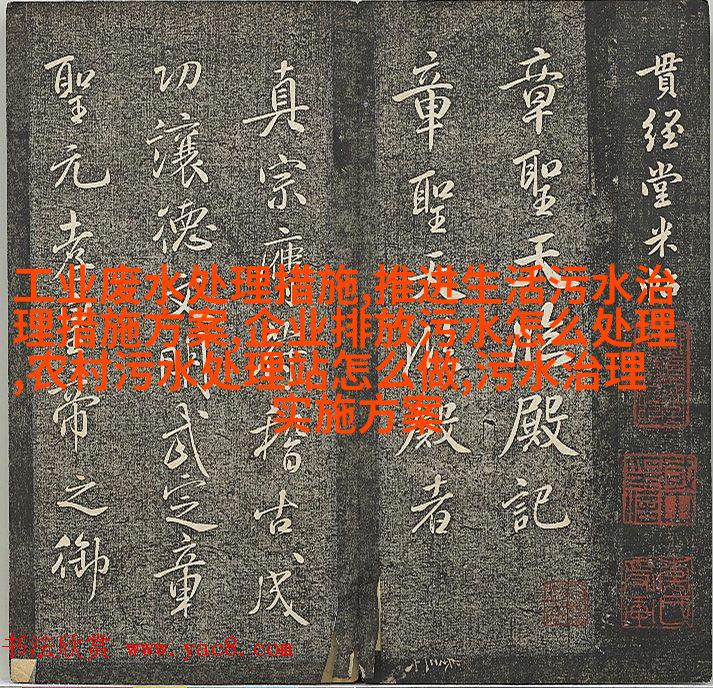 貫經堂米
章聖天臨殿記
章聖天臨殿者
真宗膺稽古成
功讓德文明武定章
聖元孝皇帝之御
工业废水处理措施,推进生活污水治
理措施方案,企业排放污水怎么处理
,农村污水处理站怎么做,污水治理
实施方案
书法欣赏 www.yac8.com